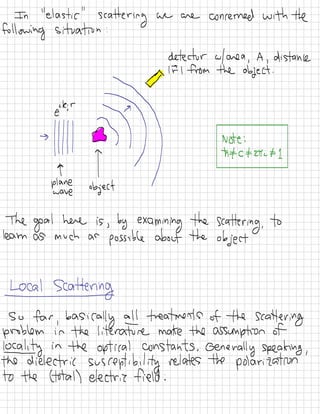 In "elastic" scattering we are concerned with the
following situation:
detector w/area, A, distance
|r⃗| from the object.
e^ik·r
Note:
ħ≠c≠2π≠1
plane
wave
object
The goal here is, by examining the scattering, to
learn as much as possible about the object
Local Scattering
So far, basically all treatments of the scattering
problem in the literature make the assumption of
locality in the optical constants. Generally speaking,
the dielectric susceptibility relates the polarization
to the (total) electric field.